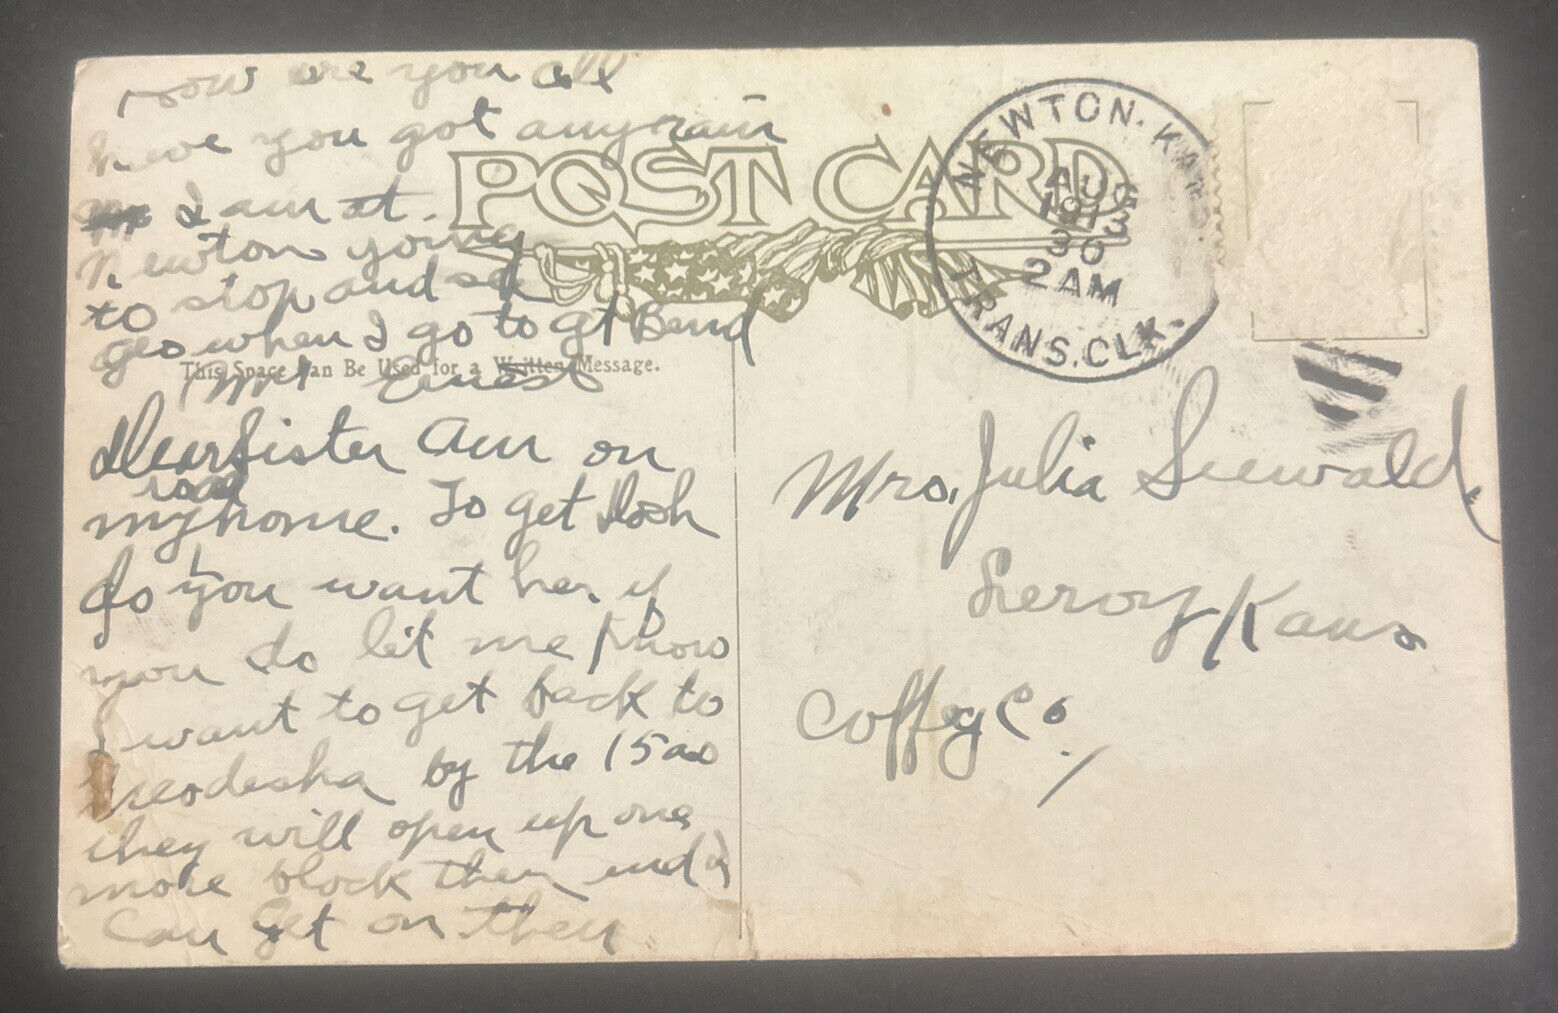 How are you all
have you got any rain
I am at.
Newton going
to stop and see
geo when I go to gt Bend
Ernest
Dear Sister Am on
road
my home. To get Dosh
do you want her if
you do let me know
I want to get back to
Neodesha by the 15 as
they will open up one
more block then and I
Can get on then
POST CARD
This Space Can Be Used for a Written Message.
NEWTON. KANS.
AUG
30
1913
2 AM
TRANS. CLK.
Mrs. Julia Seewald,
Leroy Kans
Coffey Co.